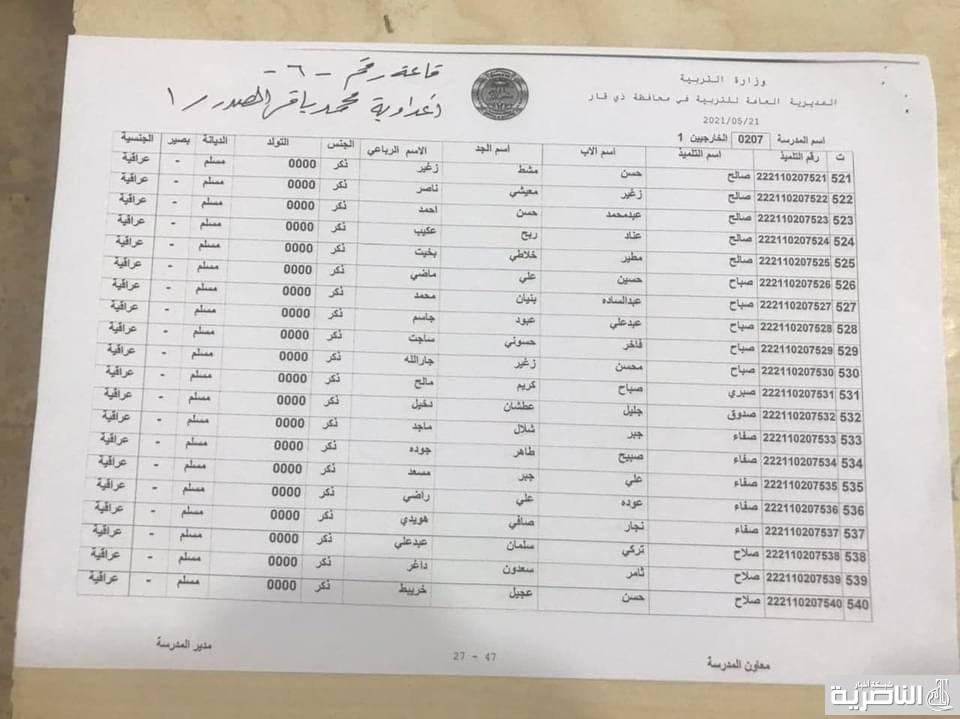 وزارة التربية
المديرية العامة للتربية في محافظة ذي قار
2021/05/21
قاعة رقم - ٦ -
اعدادية محمد باقر الصدر / ١
اسم المدرسة 0207 الخارجيين 1
ت رقم التلميذ اسم التلميذ اسم الاب اسم الجد الاسم الرباعي الجنس التولد الديانة بصير الجنسية
521 222110207521 صالح حسن مشط زغير ذكر 0000 مسلم - عراقية
522 222110207522 صالح زغير معيشي ناصر ذكر 0000 مسلم - عراقية
523 222110207523 صالح عبدمحمد حسن احمد ذكر 0000 مسلم - عراقية
524 222110207524 صالح عناد ربح عكيب ذكر 0000 مسلم - عراقية
525 222110207525 صالح مطير خلاطي بخيت ذكر 0000 مسلم - عراقية
526 222110207526 صباح حسين علي ماضي ذكر 0000 مسلم - عراقية
527 222110207527 صباح عبدالساده بنيان محمد ذكر 0000 مسلم - عراقية
528 222110207528 صباح عبدعلي عبود جاسم ذكر 0000 مسلم - عراقية
529 222110207529 صباح فاخر حسوني ساجت ذكر 0000 مسلم - عراقية
530 222110207530 صباح محسن زغير جارالله ذكر 0000 مسلم - عراقية
531 222110207531 صبري صباح كريم مالح ذكر 0000 مسلم - عراقية
532 222110207532 صدوق جليل عطشان دخيل ذكر 0000 مسلم - عراقية
533 222110207533 صفاء جبر شلال ماجد ذكر 0000 مسلم - عراقية
534 222110207534 صفاء صبيح طاهر جوده ذكر 0000 مسلم - عراقية
535 222110207535 صفاء علي جبر مسعد ذكر 0000 مسلم - عراقية
536 222110207536 صفاء عوده علي راضي ذكر 0000 مسلم - عراقية
537 222110207537 صفاء نجار صافي هويدي ذكر 0000 مسلم - عراقية
538 222110207538 صلاح تركي سلمان عبدعلي ذكر 0000 مسلم - عراقية
539 222110207539 صلاح ثامر سعدون داغر ذكر 0000 مسلم - عراقية
540 222110207540 صلاح حسن عجيل خريبط ذكر 0000 مسلم - عراقية
معاون المدرسة
27 - 47
مدير المدرسة
شبكة أخبار
الناصرية